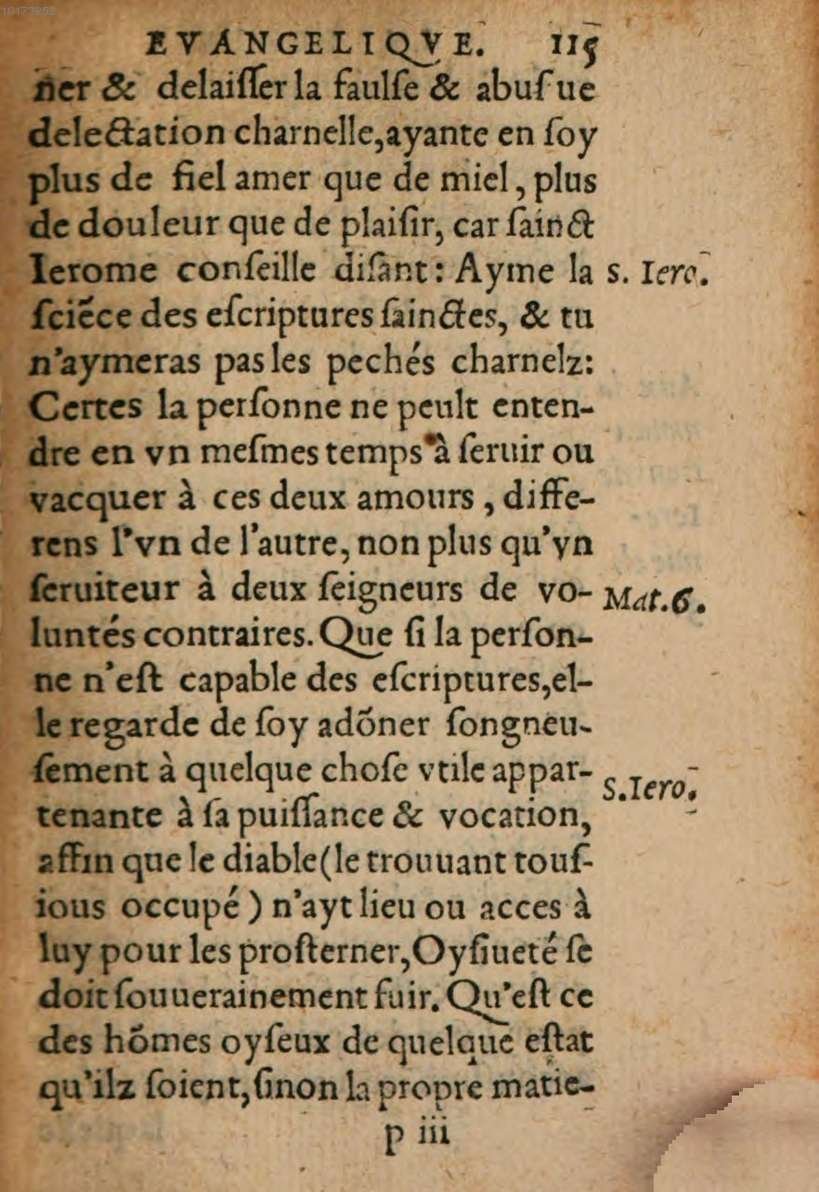 EVANGELIQVE. 115
ner & delaiſſer la faulſe & abuſiue
delectation charnelle, ayante en ſoy
plus de fiel amer que de miel, plus
de douleur que de plaiſir, car ſainct
Ierome conſeille diſant: Ayme la
S. Iero.
ſciẽce des eſcriptures ſainctes, & tu
n'aymeras pas les pechés charnelz:
Certes la perſonne ne peult enten-
dre en vn meſmes temps à ſeruir ou
vacquer à ces deux amours, diffe-
rens l'vn de l'autre, non plus qu'vn
ſeruiteur à deux ſeigneurs de vo-
Mat. 6.
luntés contraires. Que ſi la perſon-
ne n'eſt capable des eſcriptures, el-
le regarde de ſoy adõner ſongneu-
ſement à quelque choſe vtile appar-
S. Iero.
tenante à ſa puiſſance & vocation,
affin que le diable (le trouuant touſ-
iours occupé) n'ayt lieu ou acces à
luy pour les proſterner, Oyſiueté ſe
doit ſouuerainement fuir. Qu'eſt ce
des hõmes oyſeux de quelque eſtat
qu'ilz ſoient, ſinon la propre matie-
p iii